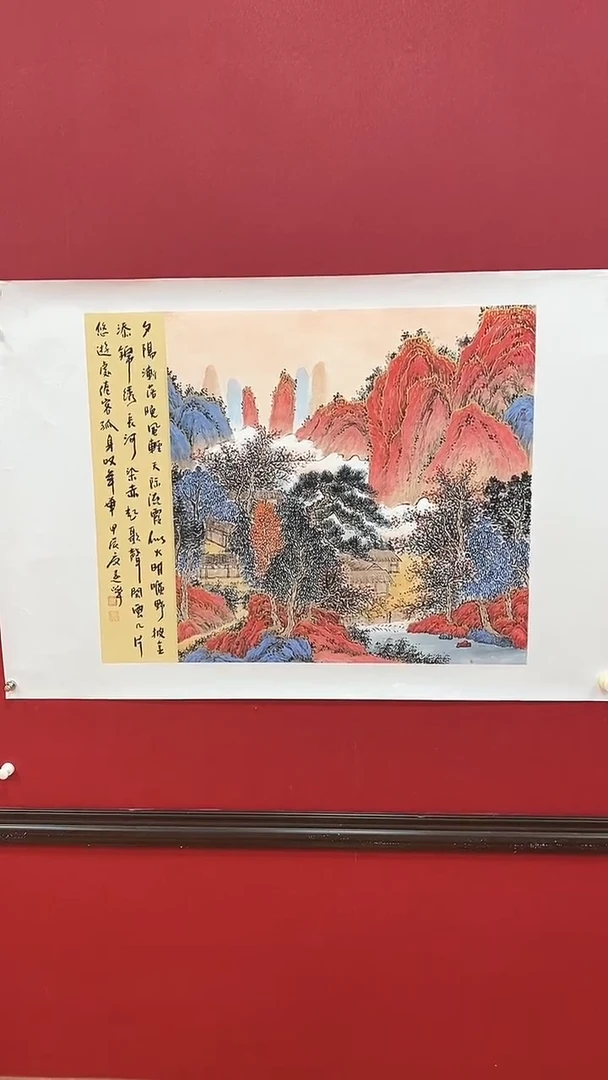 夕陽漸落晚風輕天际流霞似火明曠野披金
添錦绣長河染赤起歌聲閒雲几片
悠遊處倦客孤身叹 甲辰夏